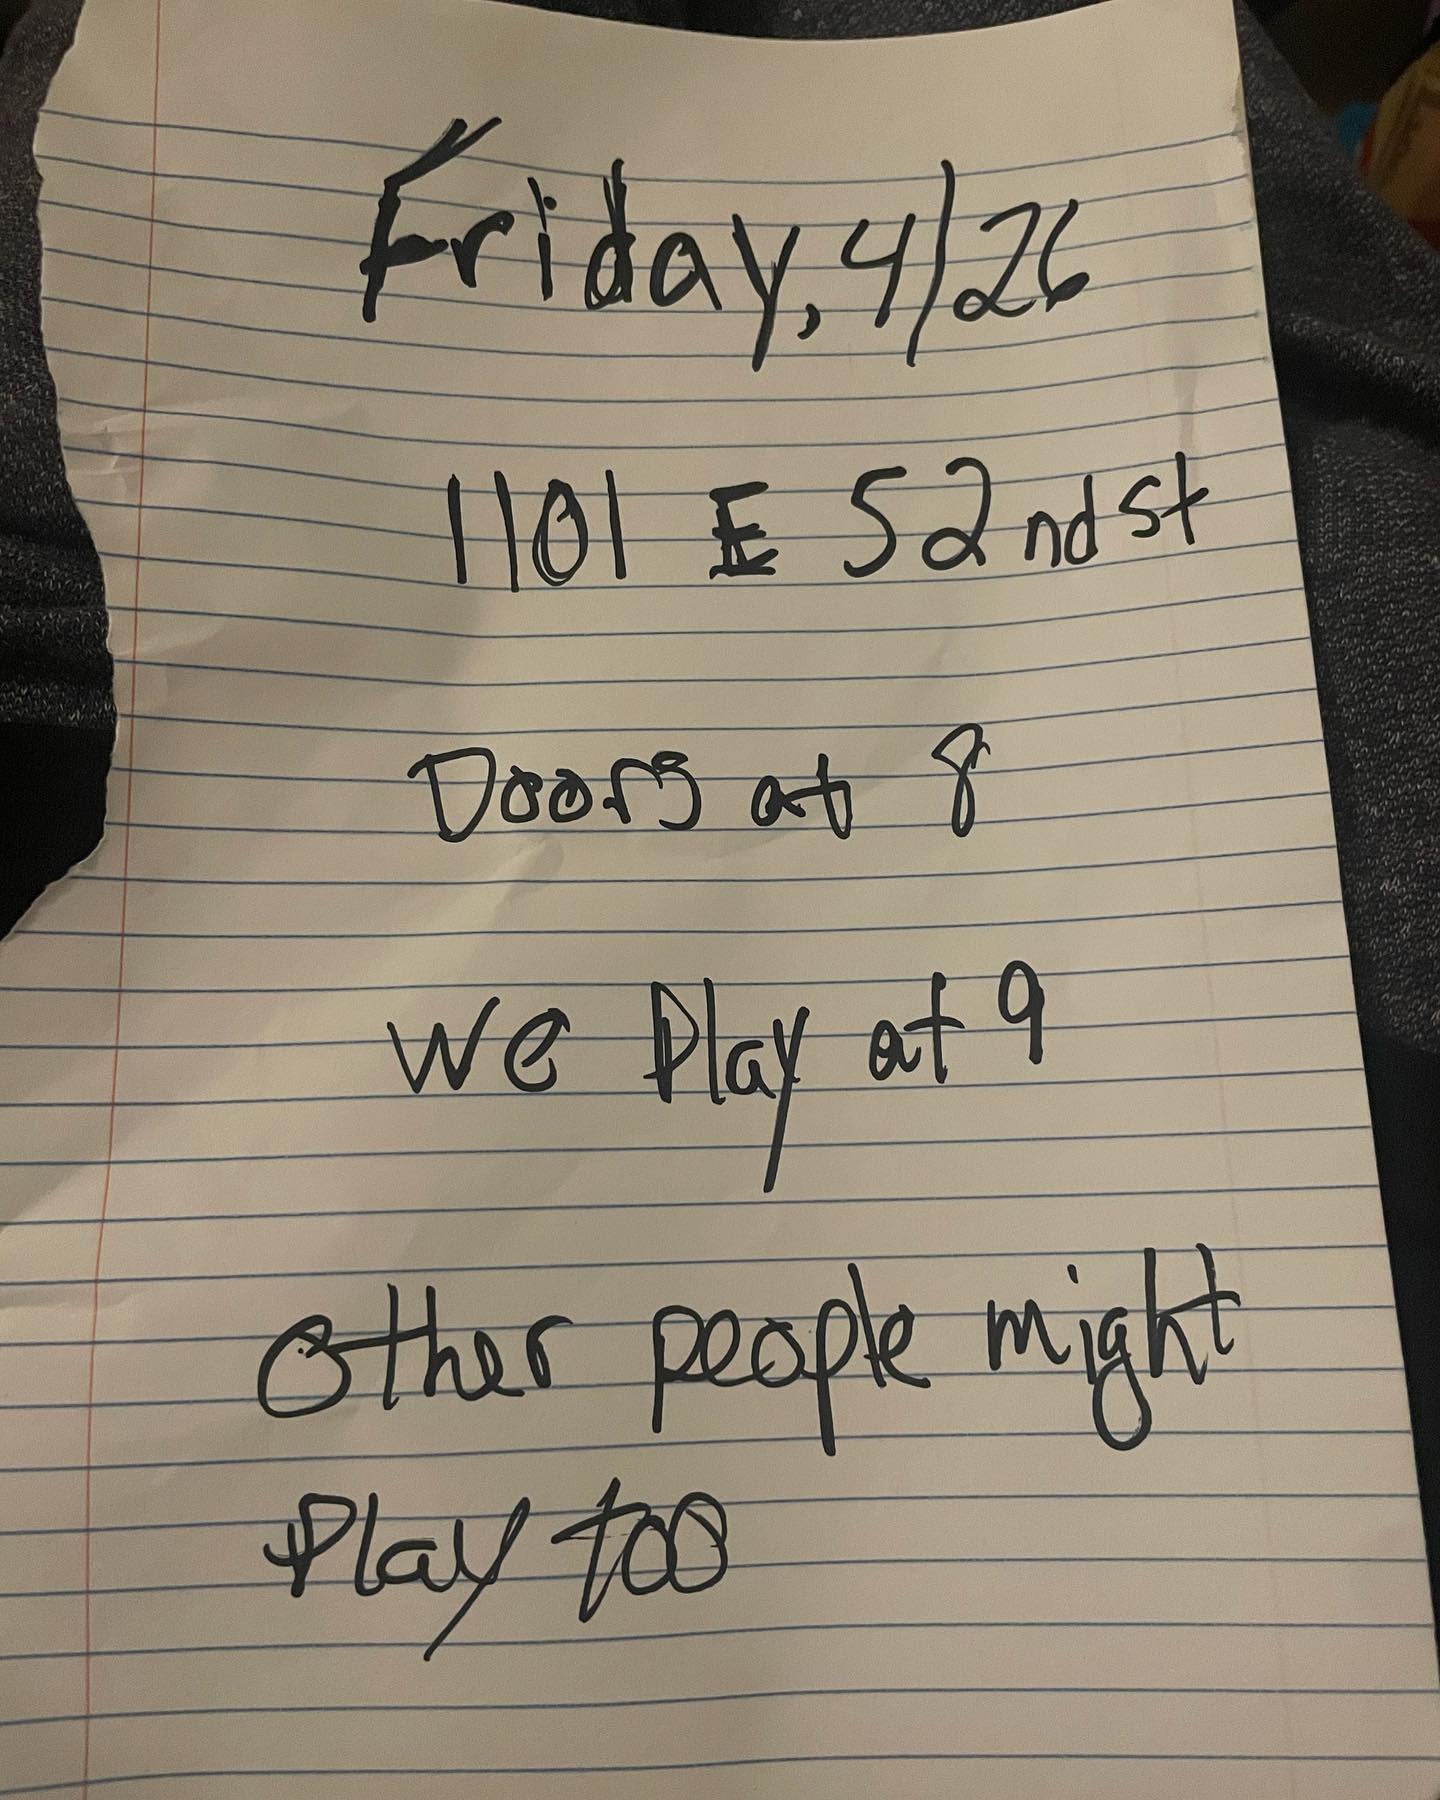 Friday, 4/26
1101 E 52nd st
Doors at 8
We Play at 9
Other people might
Play too